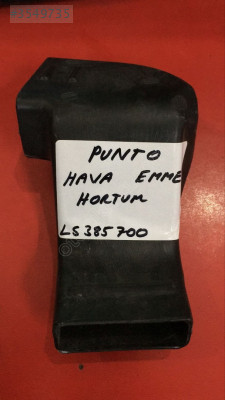 PUNTO
HAVA EMME
HORTUM
LS385700